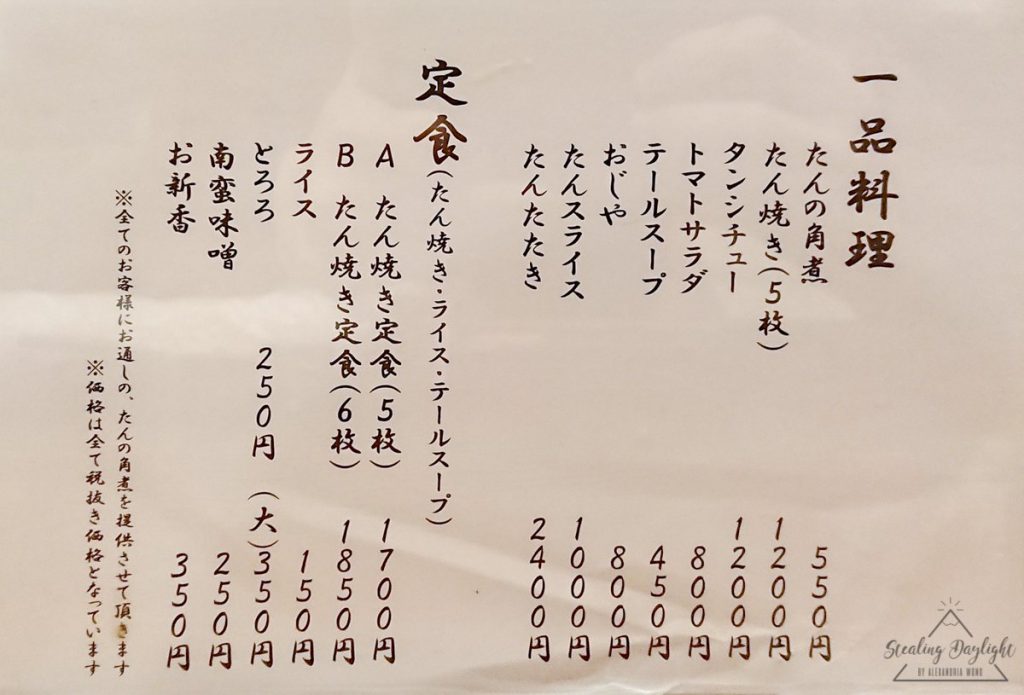 一品料理
たんの角煮 550円
たん焼き(5枚) 1200円
タンシチュー 1200円
トマトサラダ 800円
テールスープ 450円
おじや 800円
たんスライス 1000円
たんたたき 2400円
定食(たん焼き・ライス・テールスープ)
A たん焼き定食(5枚) 1700円
B たん焼き定食(6枚) 1850円
ライス 150円
とろろ 250円 (大)350円
南蛮味噌 250円
お新香 350円
※全てのお客様にお通しの、たんの角煮を提供させて頂きます
※価格は全て税抜き価格となっています
Stealing Daylight
BY ALEXANDRIA WONG